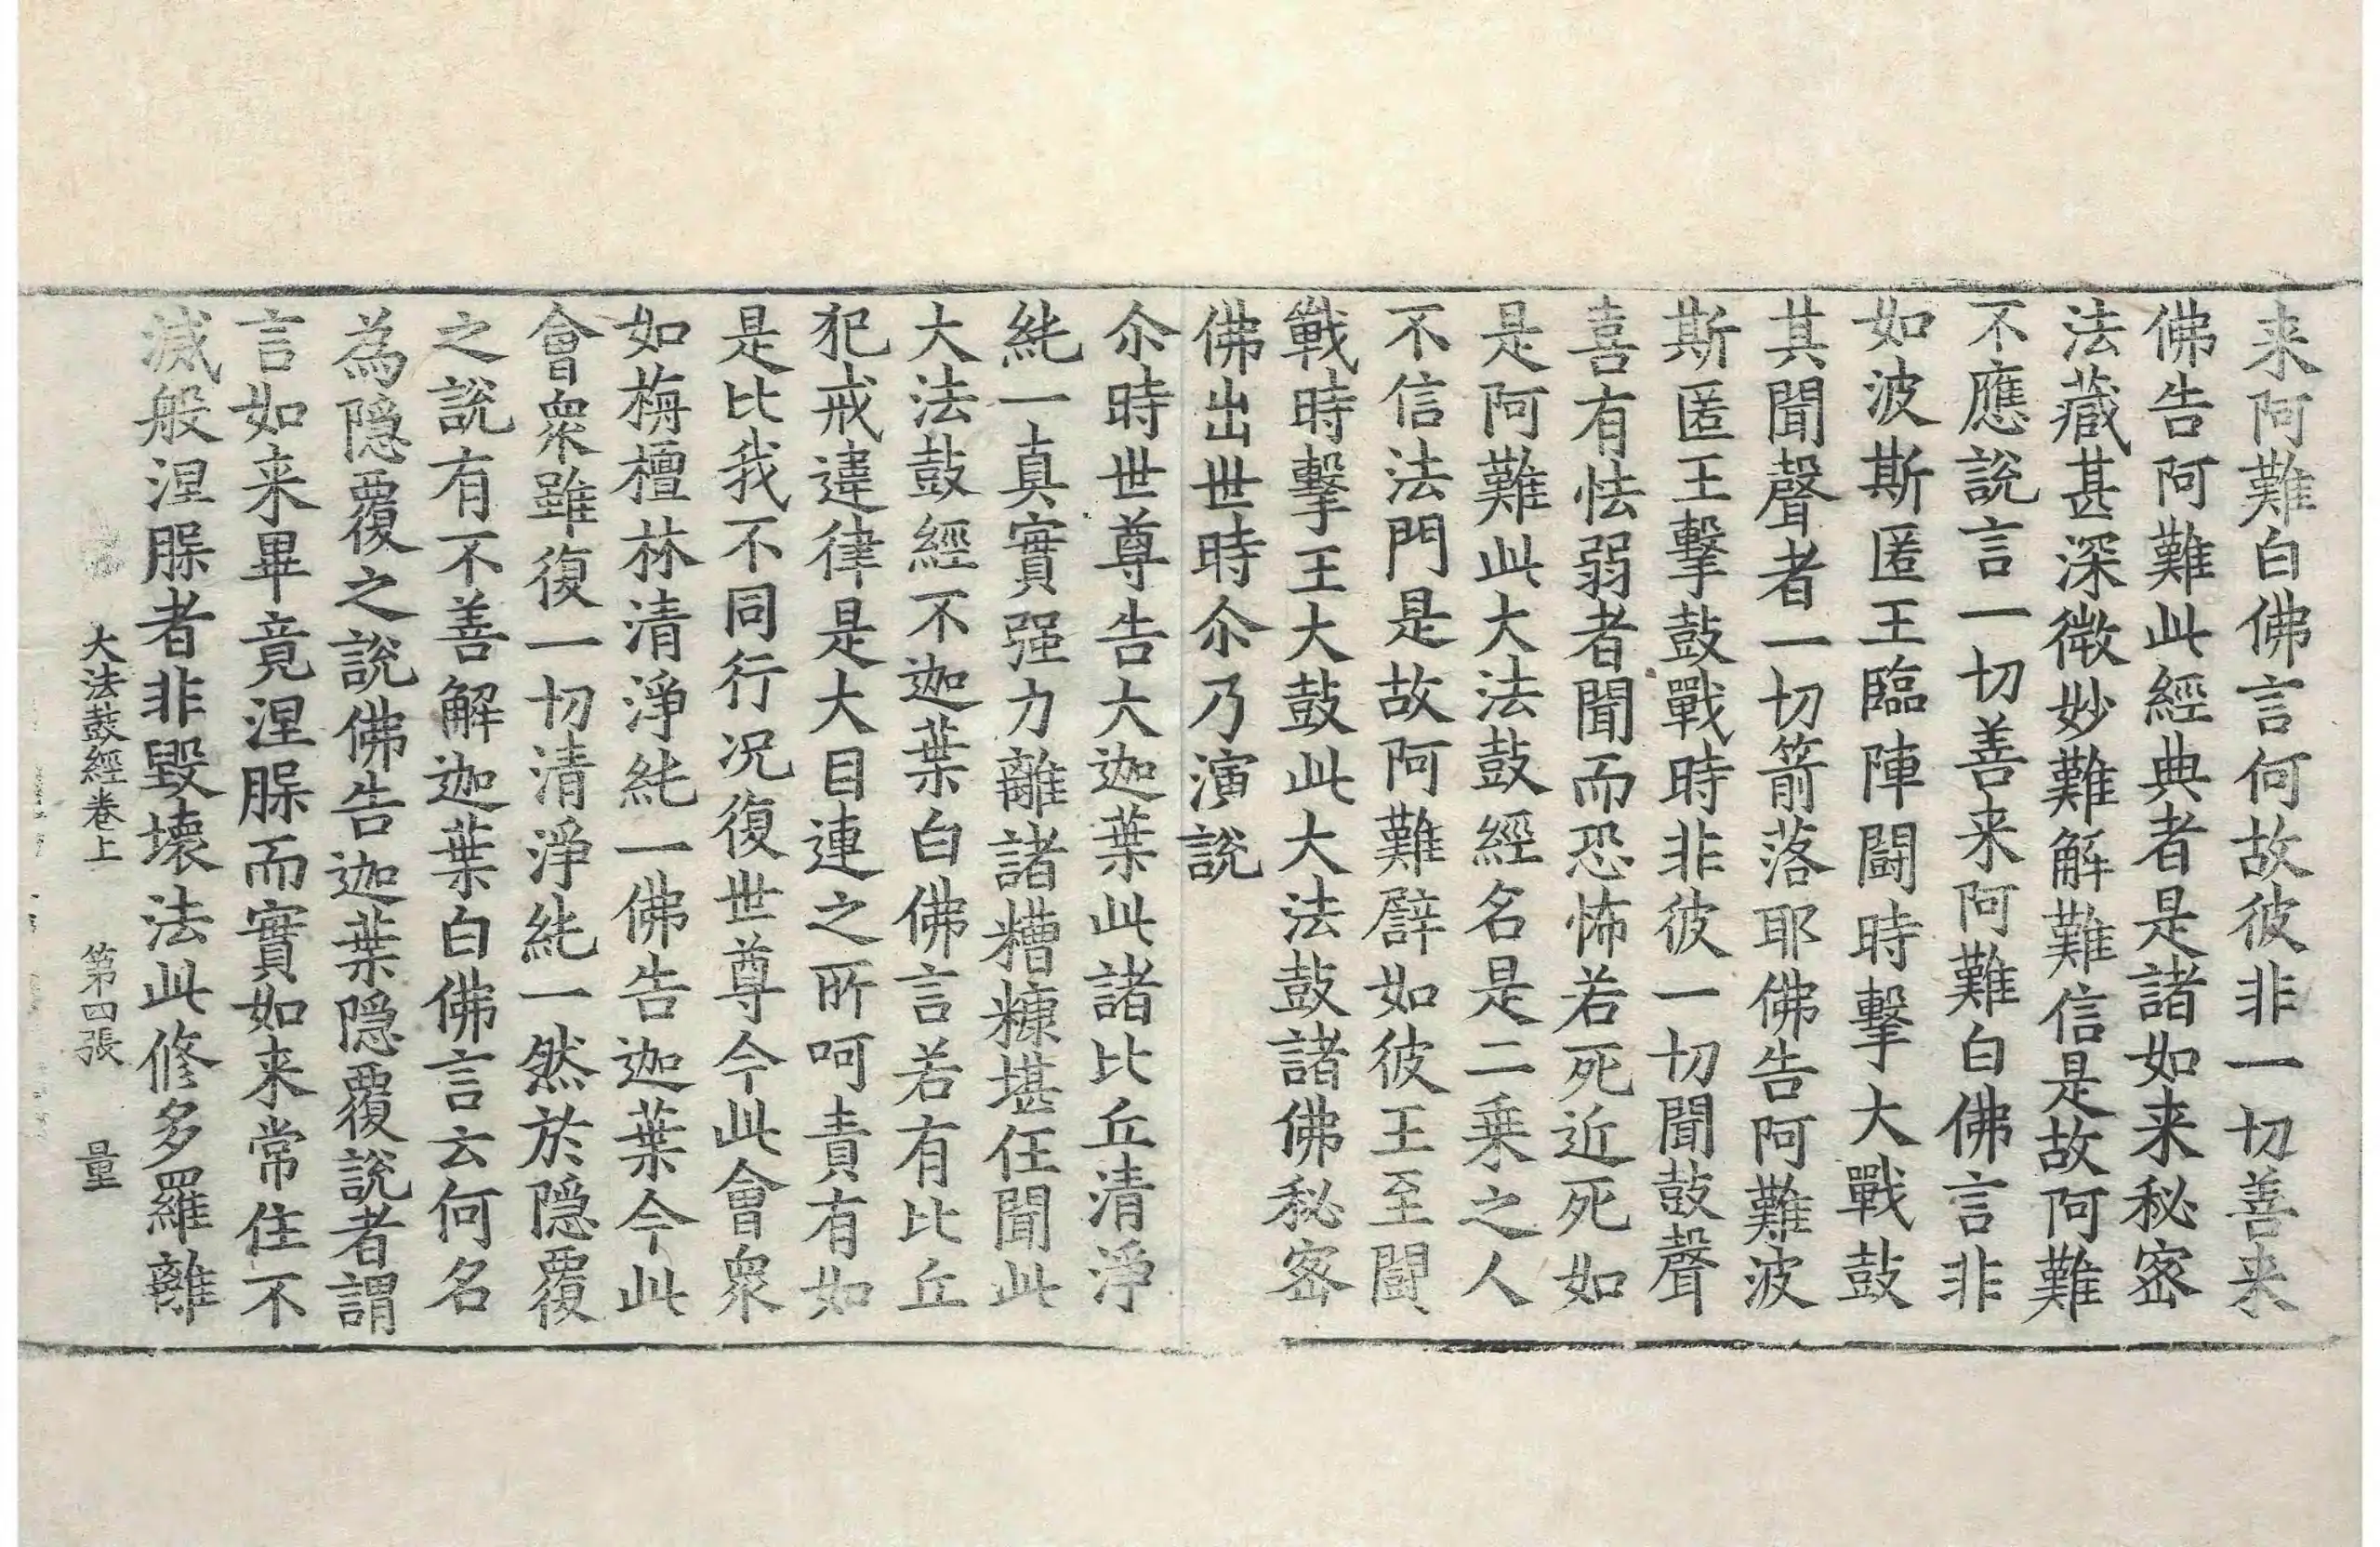 来阿難白佛言何故彼非一切善来
佛告阿難此經典者是諸如来秘密
法藏甚深微妙難解難信是故阿難
不應說言一切善来阿難白佛言非
如波斯匿王臨陣鬪時擊大戰鼓
其聞聲者一切箭落耶佛告阿難波
斯匿王擊鼓戰時非彼一切聞鼓聲
喜有怯弱者聞而恐怖若死近死如
是阿難此大法鼓經名是二乗之人
不信法門是故阿難譬如彼王至鬪
戰時擊王大鼓此大法鼓諸佛秘密
佛出世時尒乃演說
尒時世尊告大迦葉此諸比丘清淨
純一真實强力離諸糟糠堪任聞此
大法鼓經不迦葉白佛言若有比丘
犯戒違律是大目連之所呵責有如
是比我不同行况復世尊今此會衆
如栴檀林清淨純一佛告迦葉今此
會衆雖復一切清淨純一然於隠覆
之說有不善解迦葉白佛言云何名
為隠覆之說佛告迦葉隠覆說者謂
言如来畢竟涅槃而實如来常住不
滅般涅槃者非毀壞法此修多羅離
大法鼓經卷上 第四張 量